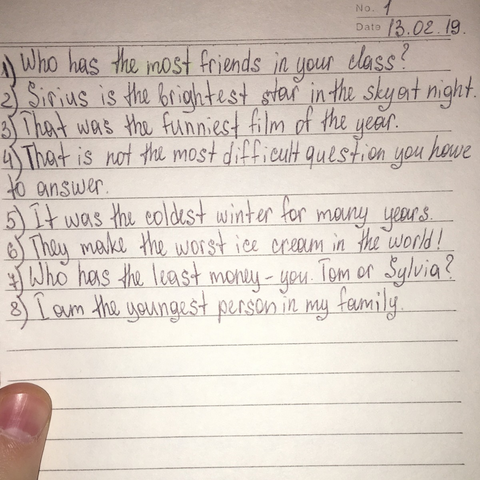 No. 1
Date 13.02.19.
1) Who has the most friends in your class?
2) Sirius is the brightest star in the sky at night.
3) That was the funniest film of the year.
4) That is not the most difficult question you have
to answer.
5) It was the coldest winter for many years.
6) They make the worst ice cream in the world!
7) Who has the least money - you. Tom or Sylvia?
8) I am the youngest person in my family.